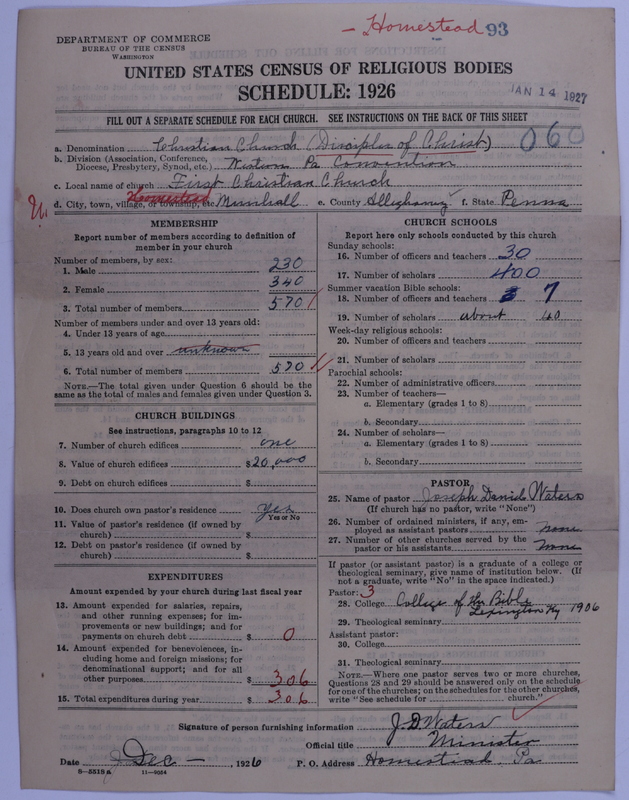 - Homestead 93
DEPARTMENT OF COMMERCE
BUREAU OF THE CENSUS
WASHINGTON
UNITED STATES CENSUS OF RELIGIOUS BODIES
SCHEDULE: 1926
JAN 14 1927
FILL OUT A SEPARATE SCHEDULE FOR EACH CHURCH. SEE INSTRUCTIONS ON THE BACK OF THIS SHEET
a. Denomination Christian Church (Disciples of Christ) 060
b. Division (Association, Conference, Diocese, Presbytery, Synod, etc.) Western Pa Convention
c. Local name of church First Christian Church
d. City, town, village, or township, etc. Homestead Munhall e. County Allegheny f. State Penna
MEMBERSHIP
Report number of members according to definition of
member in your church
Number of members, by sex:
1. Male 230
2. Female 340
3. Total number of members 570
Number of members under and over 13 years old:
4. Under 13 years of age
5. 13 years old and over unknown
6. Total number of members 570
NOTE.—The total given under Question 6 should be
same as the total of males and females given under Question 3.
CHURCH BUILDINGS
See instructions, paragraphs 10 to 12
7. Number of church edifices one
8. Value of church edifices $20,000
9. Debt on church edifices $
10. Does church own pastor's residence Yes
Yes or No
11. Value of pastor's residence (if owned by
church) $
12. Debt on pastor's residence (if owned by
church) $
EXPENDITURES
Amount expended by your church during last fiscal year
13. Amount expended for salaries, repairs,
and other running expenses; for im-
provements or new buildings; and for
payments on church debt $ 0
14. Amount expended for benevolences, in-
cluding home and foreign missions; for
denominational support; and for all
other purposes $ 306
15. Total expenditures during year $ 306
CHURCH SCHOOLS
Report here only schools conducted by this church
Sunday schools:
16. Number of officers and teachers 30
17. Number of scholars 400
Summer vacation Bible schools:
18. Number of officers and teachers 7
19. Number of scholars about 60
Week-day religious schools:
20. Number of officers and teachers
21. Number of scholars
Parochial schools:
22. Number of administrative officers
23. Number of teachers—
a. Elementary (grades 1 to 8)
b. Secondary
24. Number of scholars—
a. Elementary (grades 1 to 8)
b. Secondary
PASTOR
25. Name of pastor Joseph Daniel Waters
(If church has no pastor, write "None")
26. Number of ordained ministers, if any, em-
ployed as assistant pastors none
27. Number of other churches served by the
pastor or his assistants none
If pastor (or assistant pastor) is a graduate of a college or
theological seminary, give name of institution below. (If
not a graduate, write "No" in the space indicated.)
Pastor: 3
28. College College of the Bible
Lexington Ky 1906
29. Theological seminary
Assistant pastor:
30. College
31. Theological seminary
NOTE.—Where one pastor serves two or more churches,
Questions 28 and 29 should be answered only on the schedule
for one of the churches; on the schedules for the other churches,
write "See schedule for church."
Signature of person furnishing information J. D Waters
Official title Minister
Date Dec - , 1926 P. O. Address Homestead, Pa
8-5515a 11-9034